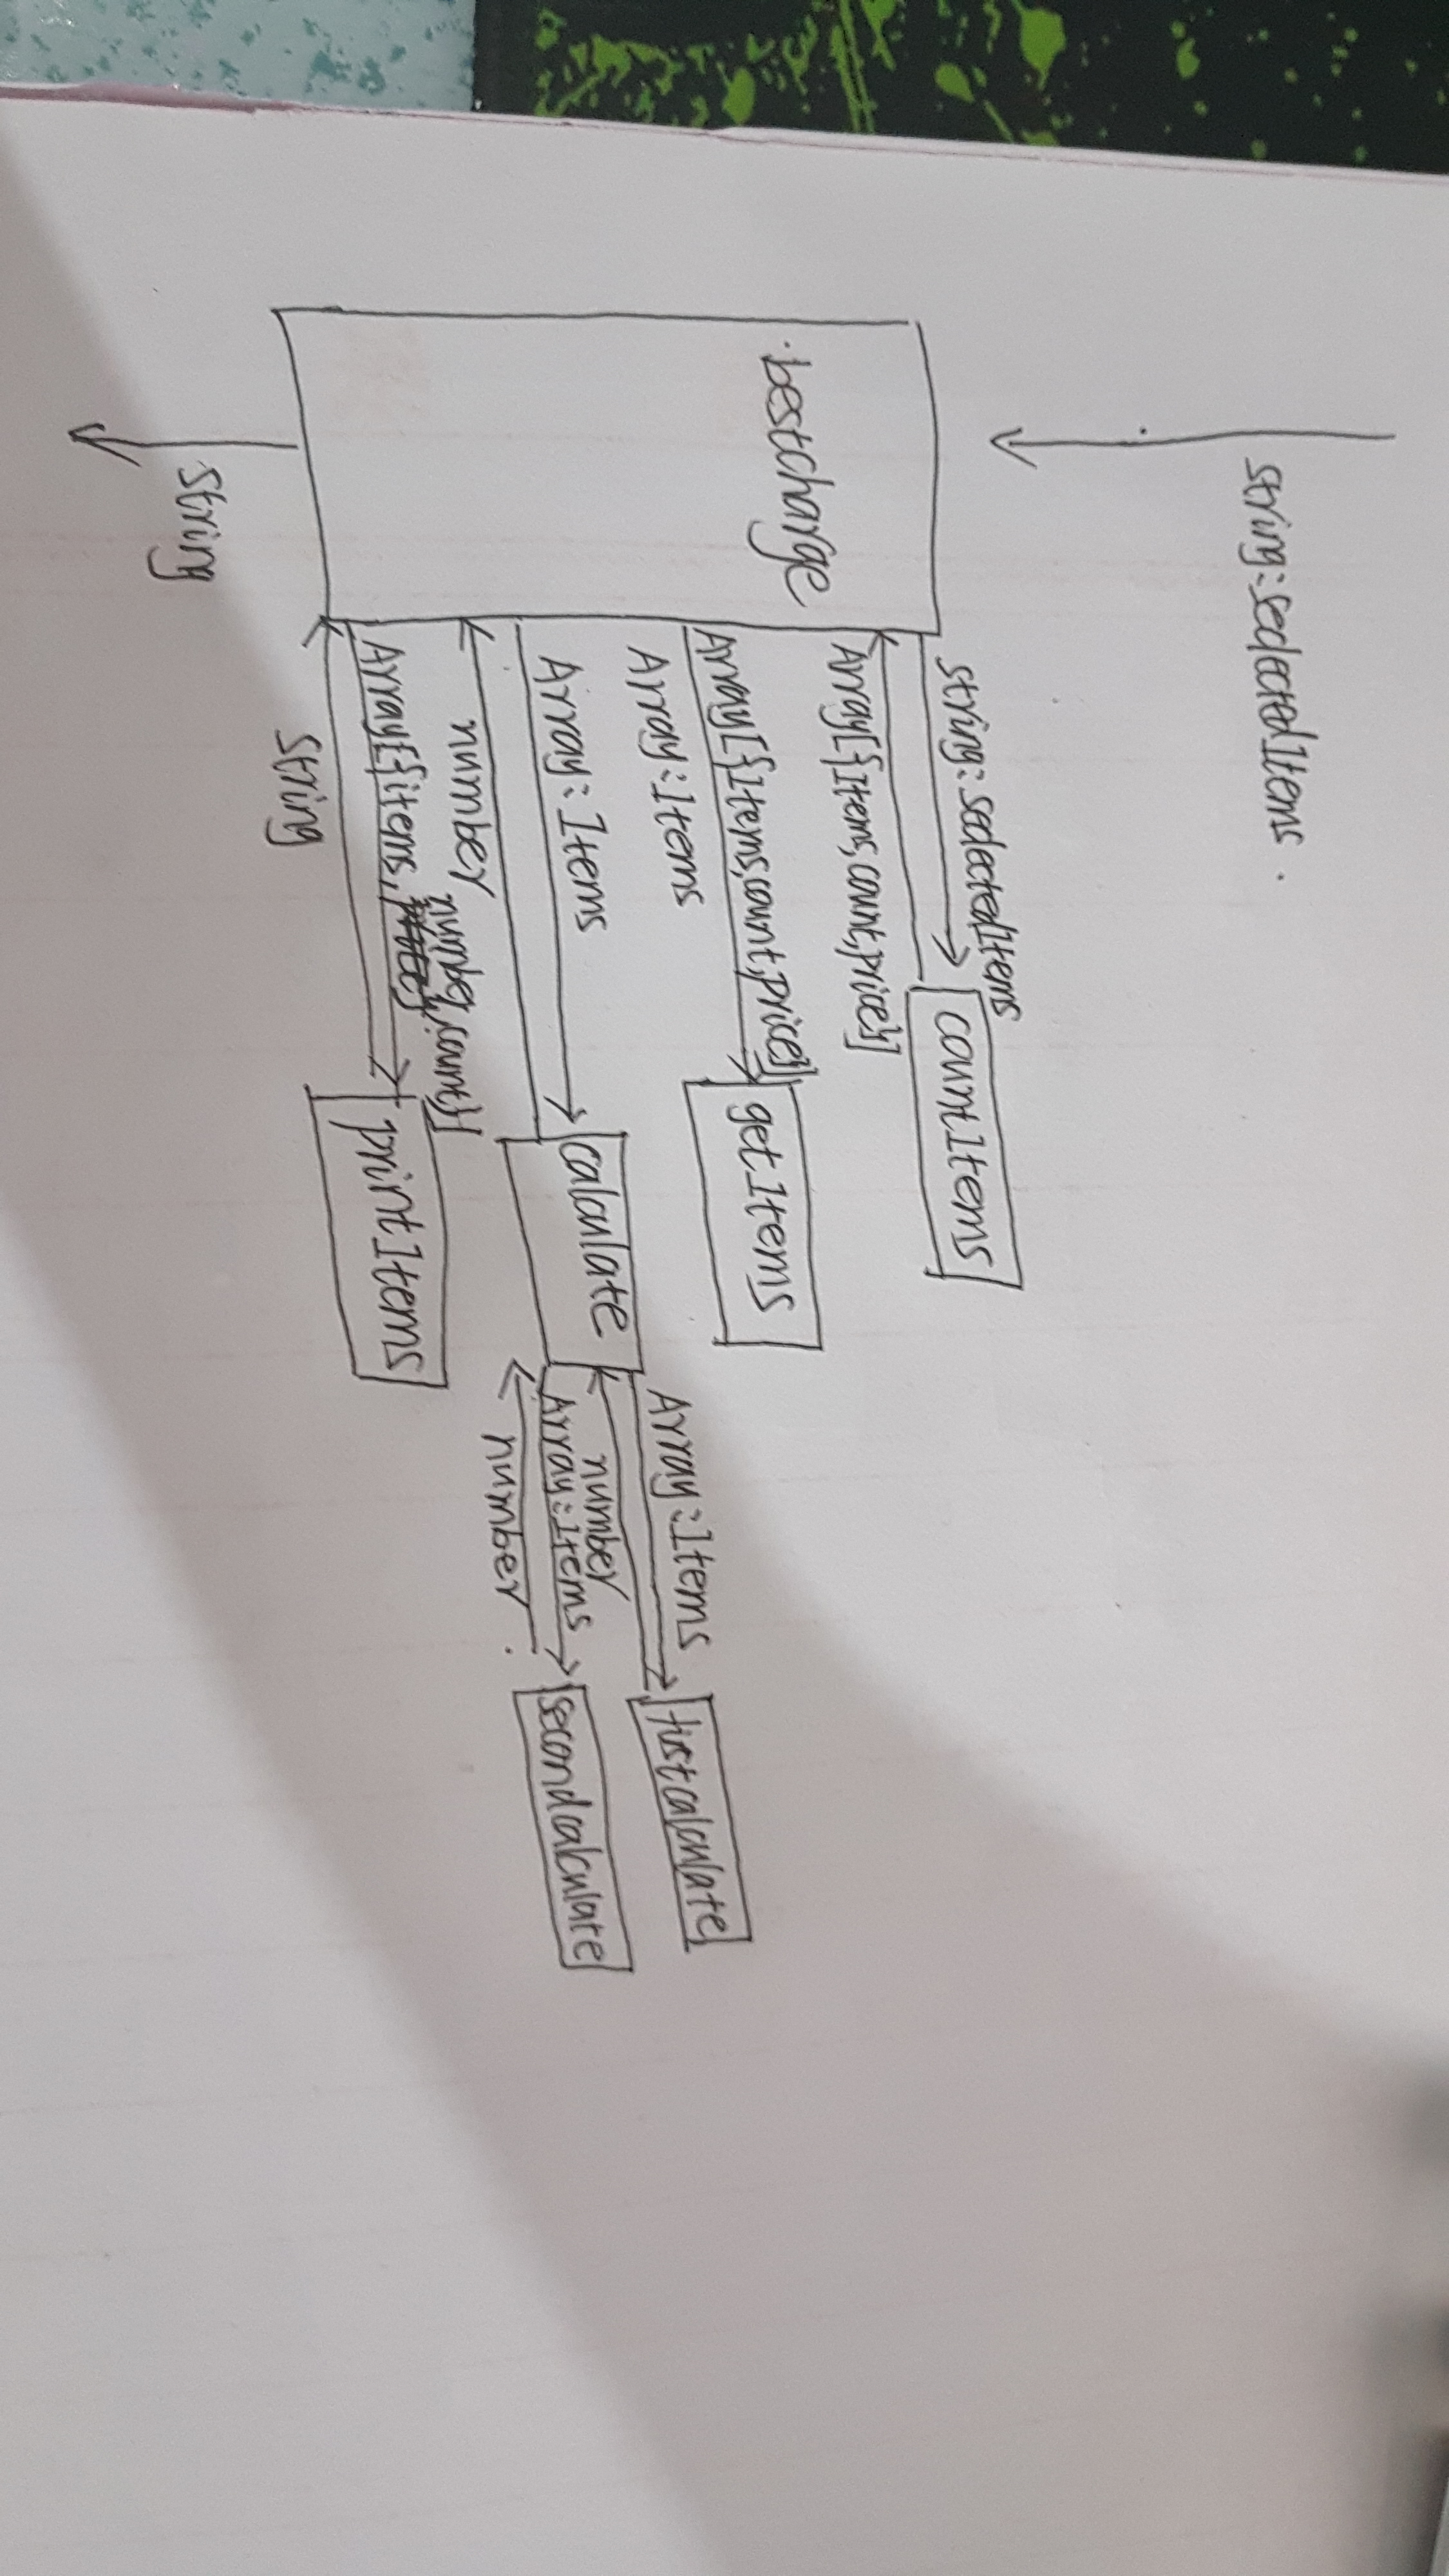 string:seclectedItems.
bestcharge
string:seclectedItems
countItems
Array[{Items,count,price}]
Array[{Items,count,price}]
getItems
Array:Items
Array:Items
calculate
number
Array:Items
fustcalculate
number
Array:Items
secondcalculate
number.
number,count}]
Array[{items,
printItems
String
String